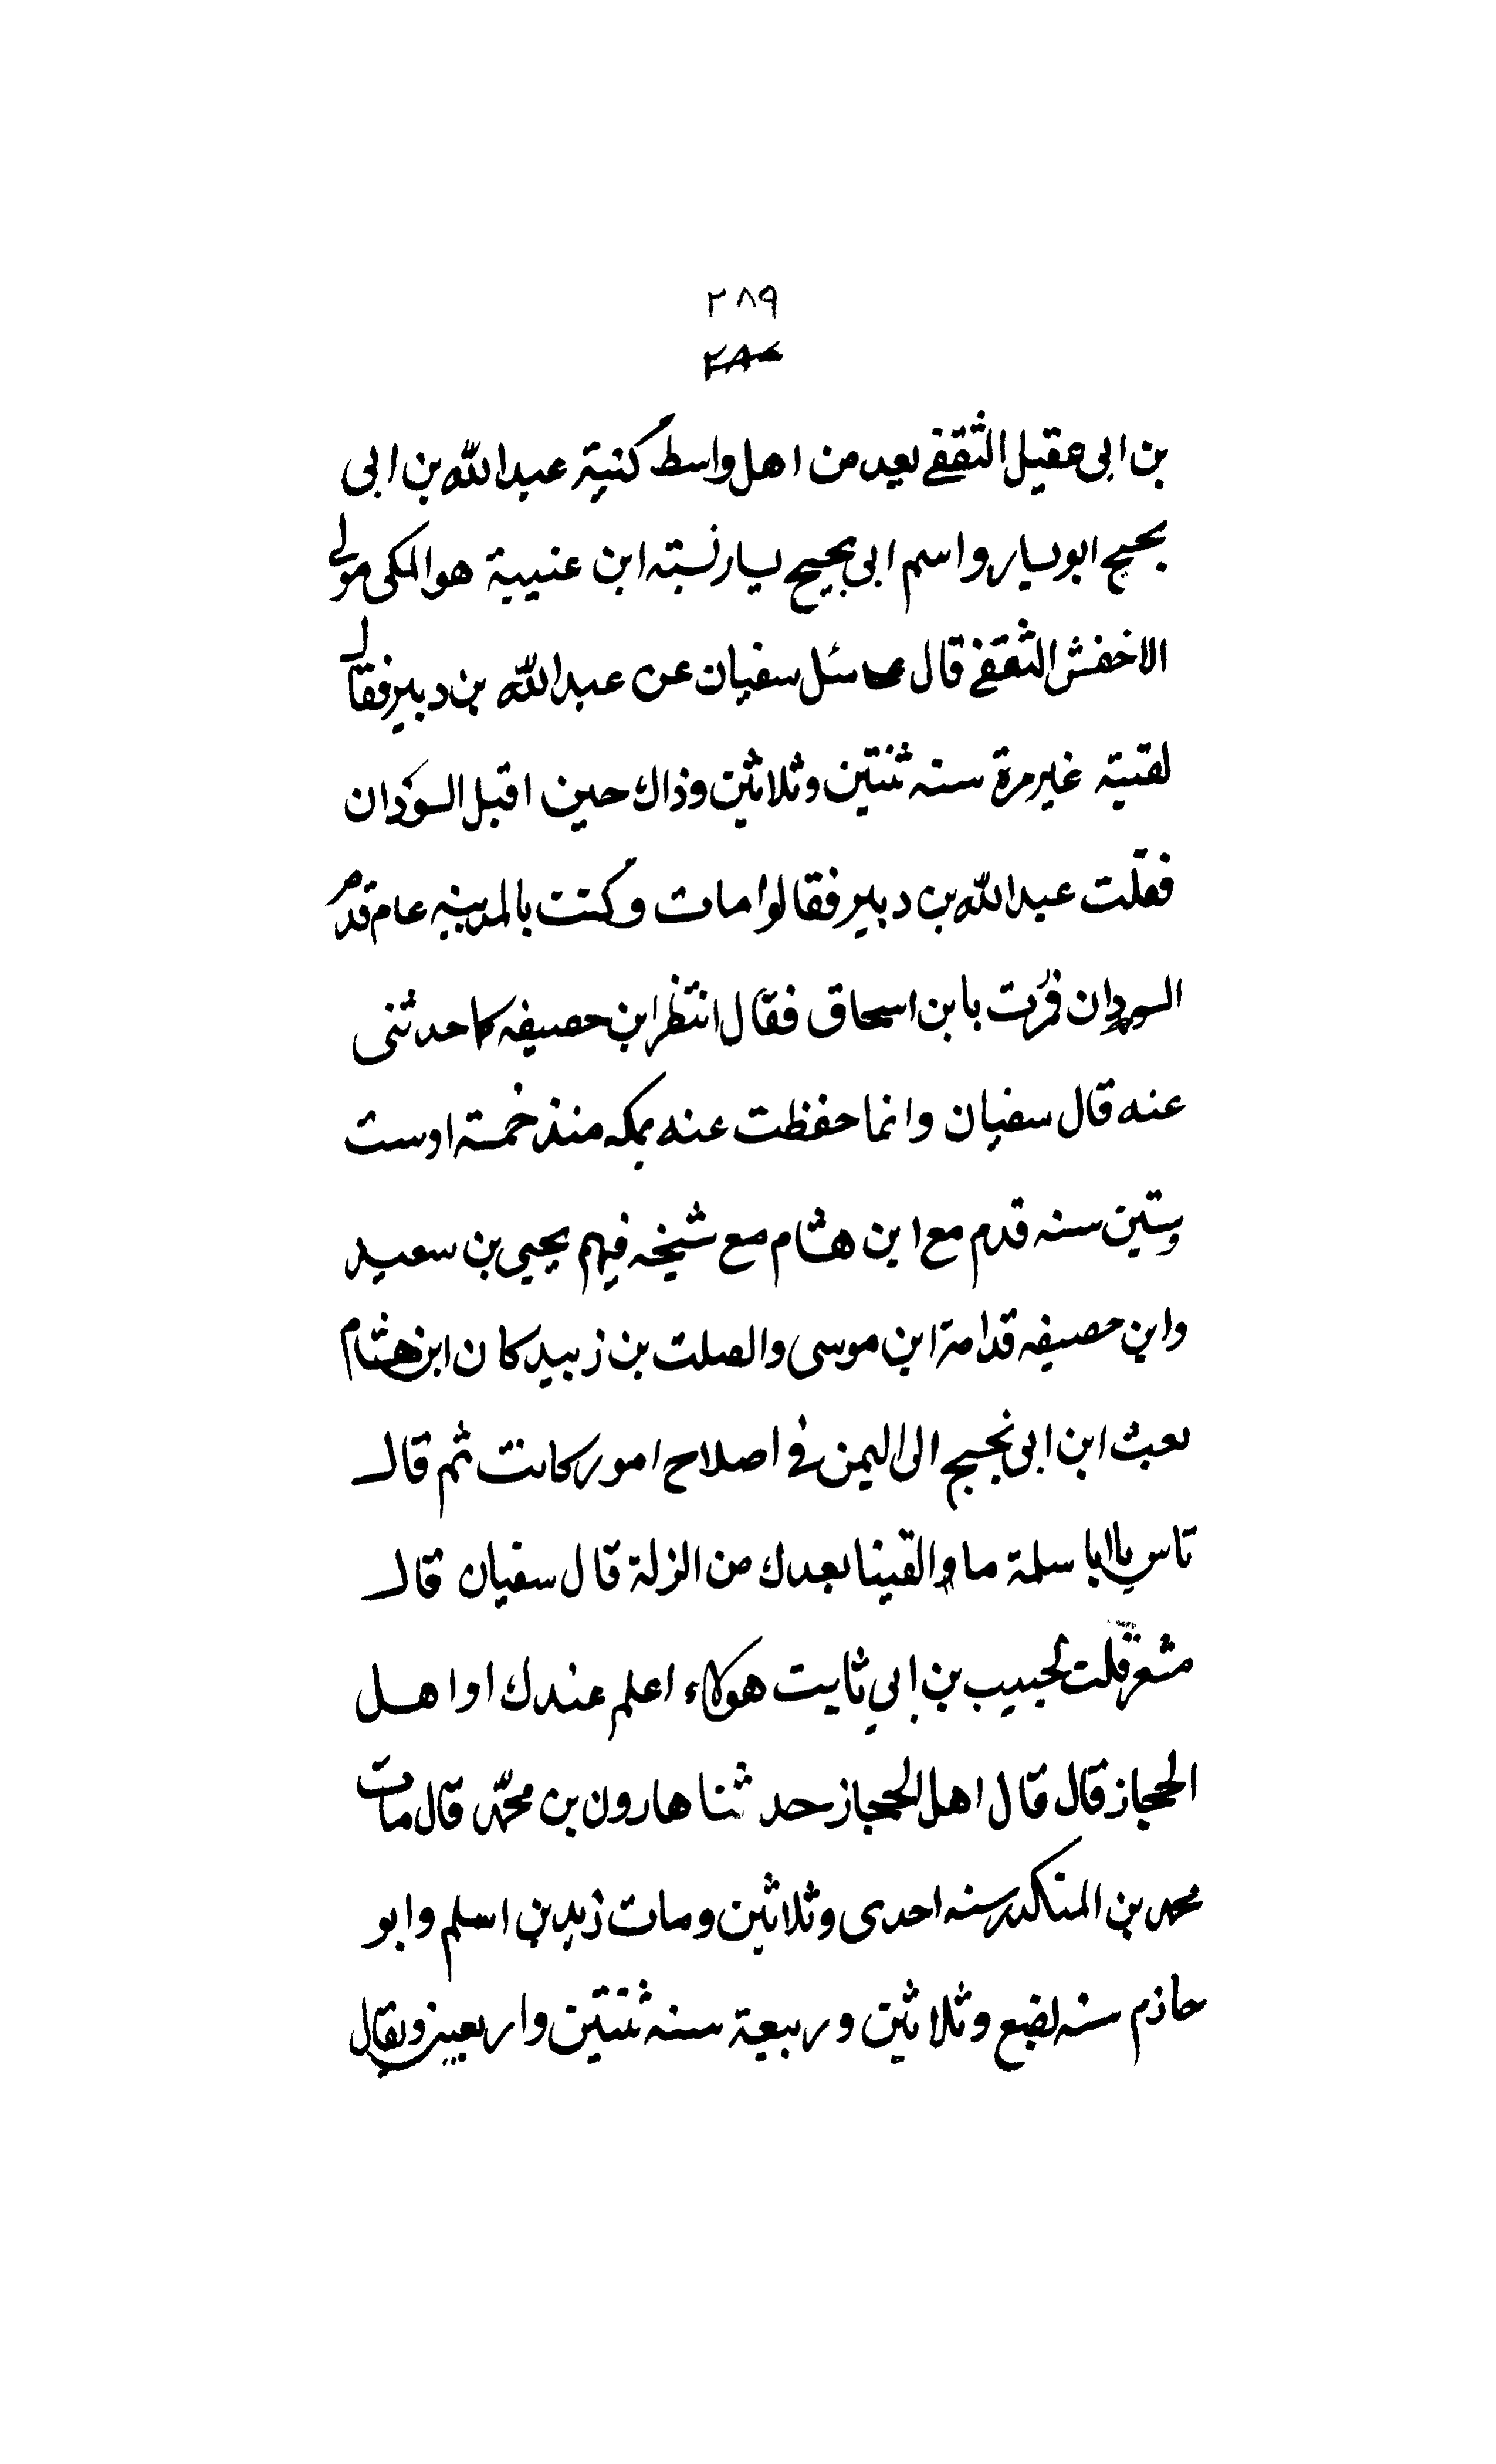 ٢٨٩
بن ابى عقيل الثقفى يعد من اهل واسط كنية عبد الله بن ابى
نجيح ابو يسار واسم ابى نجيح يسار نسبته ابن عنيية هو المكى مولى
الاخفش الثقفى قال سئل سفيان عن عبد الله بن دبير فقال
لقيته غير مرة سنه ثنتين وثلاثين وذاك حين اقبل السودان
فقلت عبد الله بن دبير فقالوا مات وكنت بالمدينه عام قدم
السودان فمرت بابن اسحاق فقال انتظر ابن حصيفه كما حدثنى
عنه قال سفيان وانما حفظت عنه بمكه منذ خمسة اوست
وستين سنه قدم مع ابن هشام مع شيخه فيهم يحيى بن سعيد
وابن حصيفه قدامة ابن موسى والصلت بن زبيد كان ابن هشام
بعث ابن ابى نجيح الى اليمن فى اصلاح امور كانت ثم قال
تاس يا ابا سلمة ما القينا بعدك من الزلة قال سفيان قال
مشعر قلت لحبيب بن ابي ثابت هولاء اعلم عندك او اهل
الحجاز قال قال اهل الحجاز حدثنا هارون بن محمد قال مات
محمد بن المنكدر سنه احدى وثلاثين ومات زيد بن اسلم وابو
حازم سنه بضع وثلاثين وربيعة سنه ثنتين واربعين ويقال